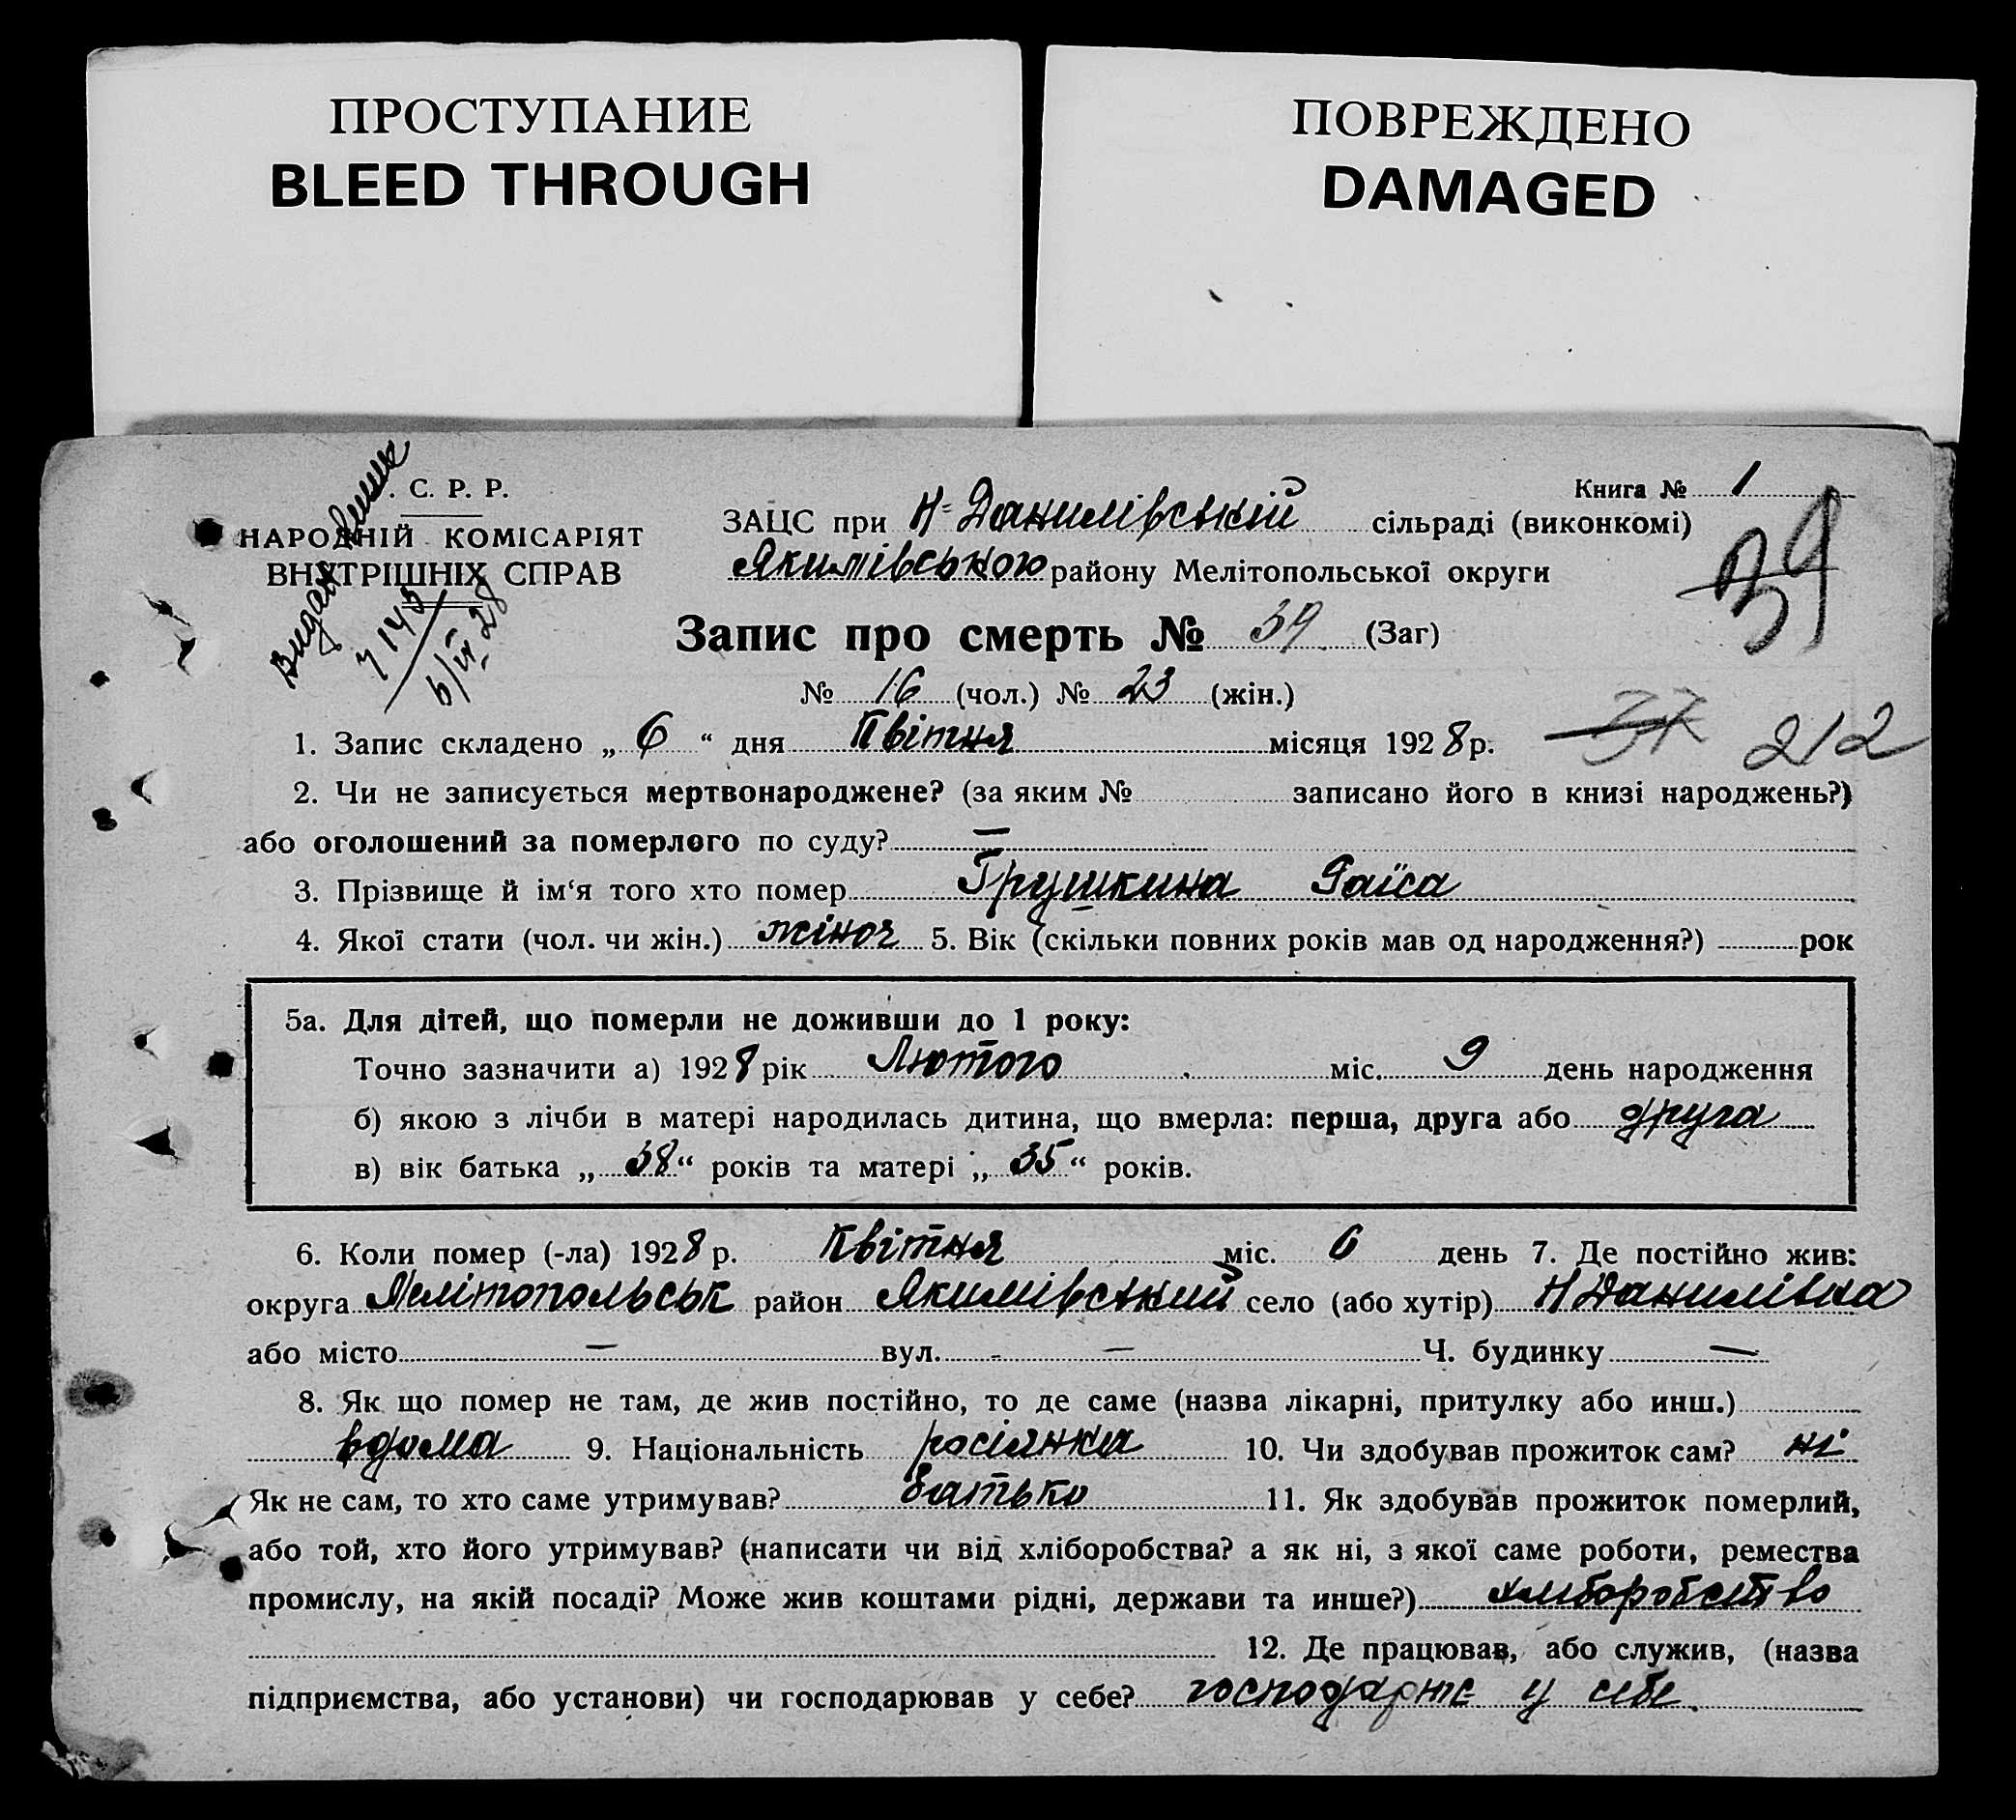 ПРОСТУПАНИЕ
BLEED THROUGH
ПОВРЕЖДЕНО
DAMAGED
. С. Р. Р.
НАРОДНІЙ КОМІСАРІЯТ
ВНУТРІШНІХ СПРАВ
Видан
7145
6/VI 28
Книга № 1
ЗАЦС при Н-Данилівській сільраді (виконкомі)
Якимівського району Мелітопольської округи
39
Запис про смерть № 39 (Заг)
№ 16 (чол.) № 23 (жін.)
37 212
1. Запис складено „ 6 “ дня Квітня місяця 1928 р.
2. Чи не записується мертвонароджене? (за яким № записано його в книзі народжень?)
або оголошений за померлого по суду? —
3. Прізвище й ім‘я того хто помер Грушкина Раїса
4. Якої стати (чол. чи жін.) жіноч 5. Вік (скільки повних років мав од народження?) рок
5а. Для дітей, що померли не доживши до 1 року:
Точно зазначити а) 1928 рік Лютого міс. 9 день народження
б) якою з лічби в матері народилась дитина, що вмерла: перша, друга або друга
в) вік батька „ 38 “ років та матері „ 35 “ років.
6. Коли помер (-ла) 1928 р. Квітня міс. 6 день 7. Де постійно жив:
округа Мелітопольськ район Якимівський село (або хутір) Н Данилівка
або місто — вул. — Ч. будинку —
8. Як що помер не там, де жив постійно, то де саме (назва лікарні, притулку або инш.)
вдома 9. Національність росіянка 10. Чи здобував прожиток сам? ні
Як не сам, то хто саме утримував? батько 11. Як здобував прожиток померлий,
або той, хто його утримував? (написати чи від хліборобства? а як ні, з якої саме роботи, ремества
промислу, на якій посаді? Може жив коштами рідні, держави та инше?) хліборобство
12. Де працював, або служив, (назва
підприємства, або установи) чи господарював у себе? господарює у себе.